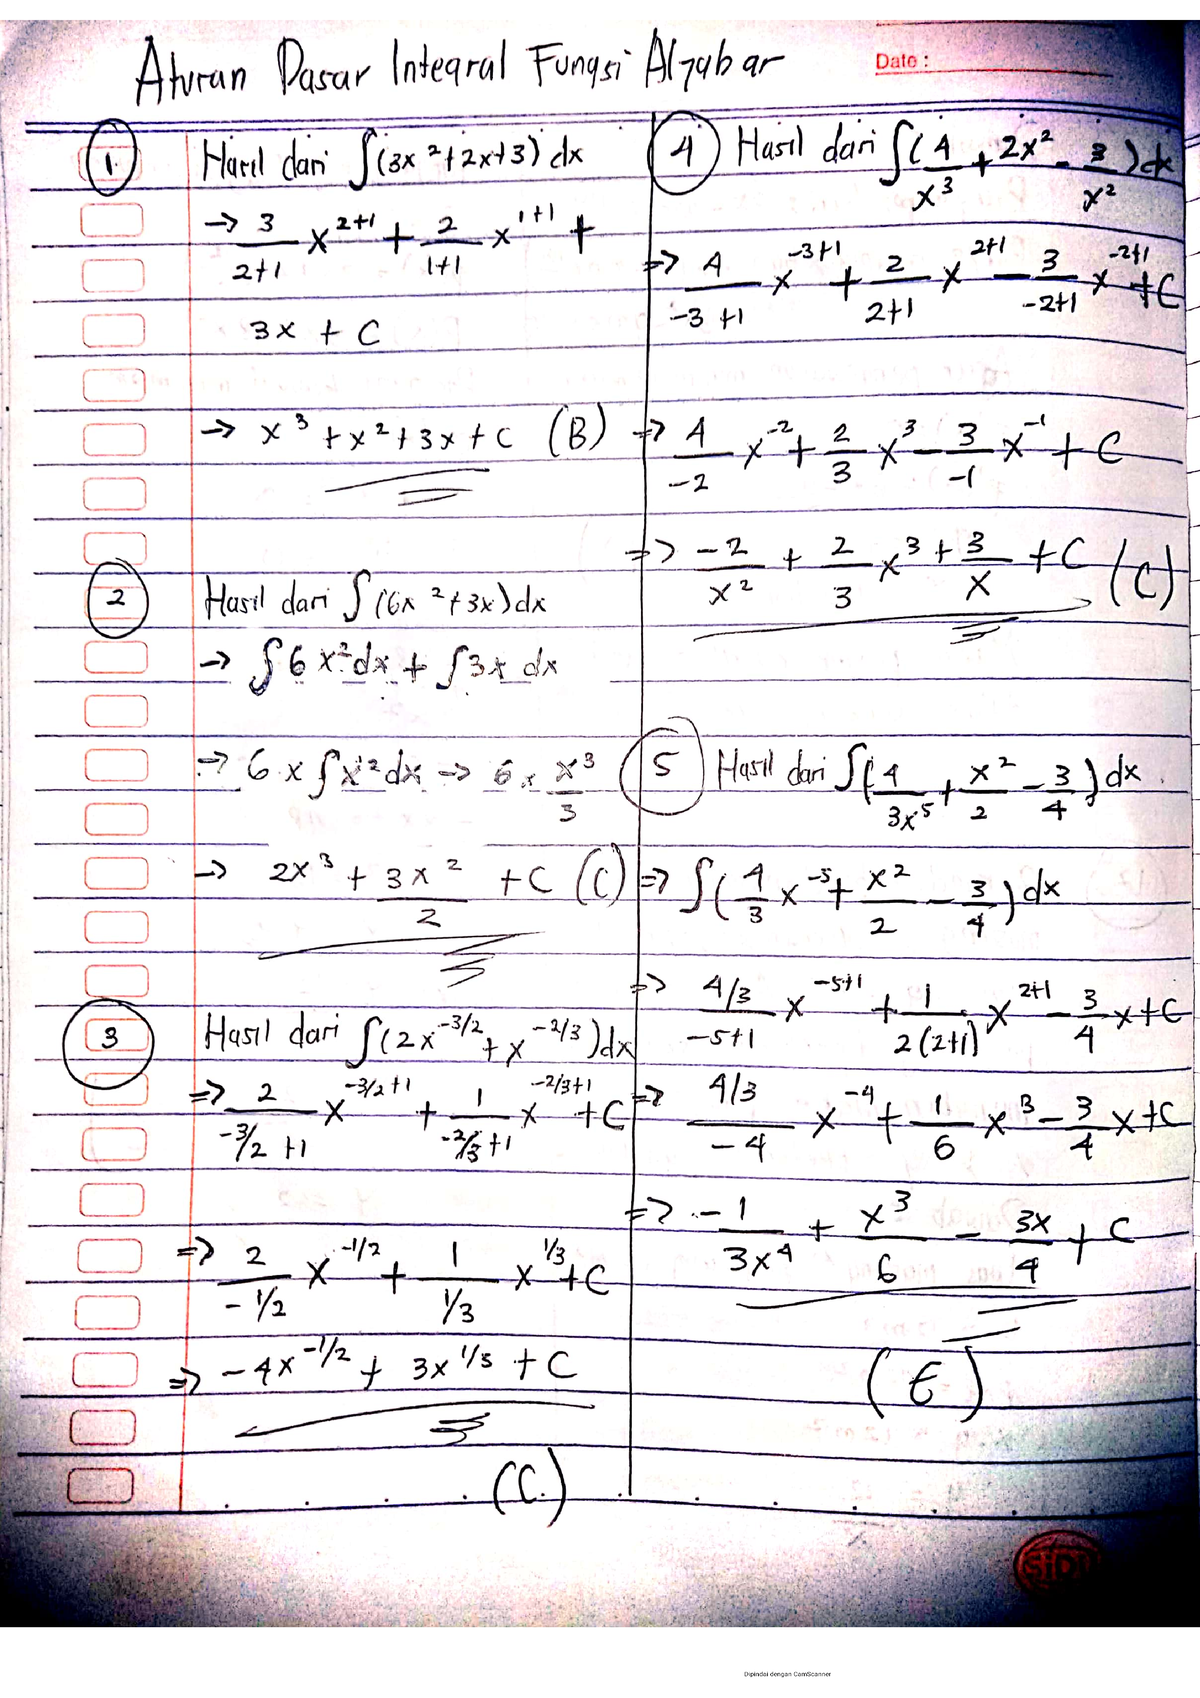 Aturan Dasar Integral Fungsi Aljabar
Date :
1. Hasil dari ∫(3x²+2x+3) dx
→ 3/(2+1) x^(2+1) + 2/(1+1) x^(1+1) +
3x + C
→ x³ + x² + 3x + C (B)
2 Hasil dari ∫(6x²+3x)dx
→ ∫6x²dx + ∫3x dx
→ 6 x ∫x²dx → 6 x x³/3
→ 2x³ + 3x²/2 + C (C)
3 Hasil dari ∫(2x^(-3/2) + x^(-2/3))dx
⇒ 2/(-3/2 +1) x^(-3/2+1) + 1/(-2/3+1) x^(-2/3+1) + C
⇒ 2/(-1/2) x^(-1/2) + 1/(1/3) x^(1/3) + C
⇒ -4x^(-1/2) + 3x^(1/3) + C
(C.)
4 Hasil dari ∫(4/x³ + 2x² - 3/x²)dx
⇒ 4/(-3+1) x^(-3+1) + 2/(2+1) x^(2+1) - 3/(-2+1) x^(-2+1) + C
⇒ 4/-2 x^(-2) + 2/3 x³ - 3/-1 x^(-1) + C
⇒ -2/x² + 2/3 x³ + 3/x + C (C)
5 Hasil dari ∫(4/3x⁵ + x²/2 - 3/4) dx
⇒ ∫(4/3 x^(-5) + x²/2 - 3/4) dx
⇒ (4/3)/(-5+1) x^(-5+1) + 1/(2(2+1)) x^(2+1) - 3/4 x + C
⇒ (4/3)/-4 x^(-4) + 1/6 x³ - 3/4 x + C
⇒ -1/3x⁴ + x³/6 - 3x/4 + C
(E)
SIDU
Dipindai dengan CamScanner